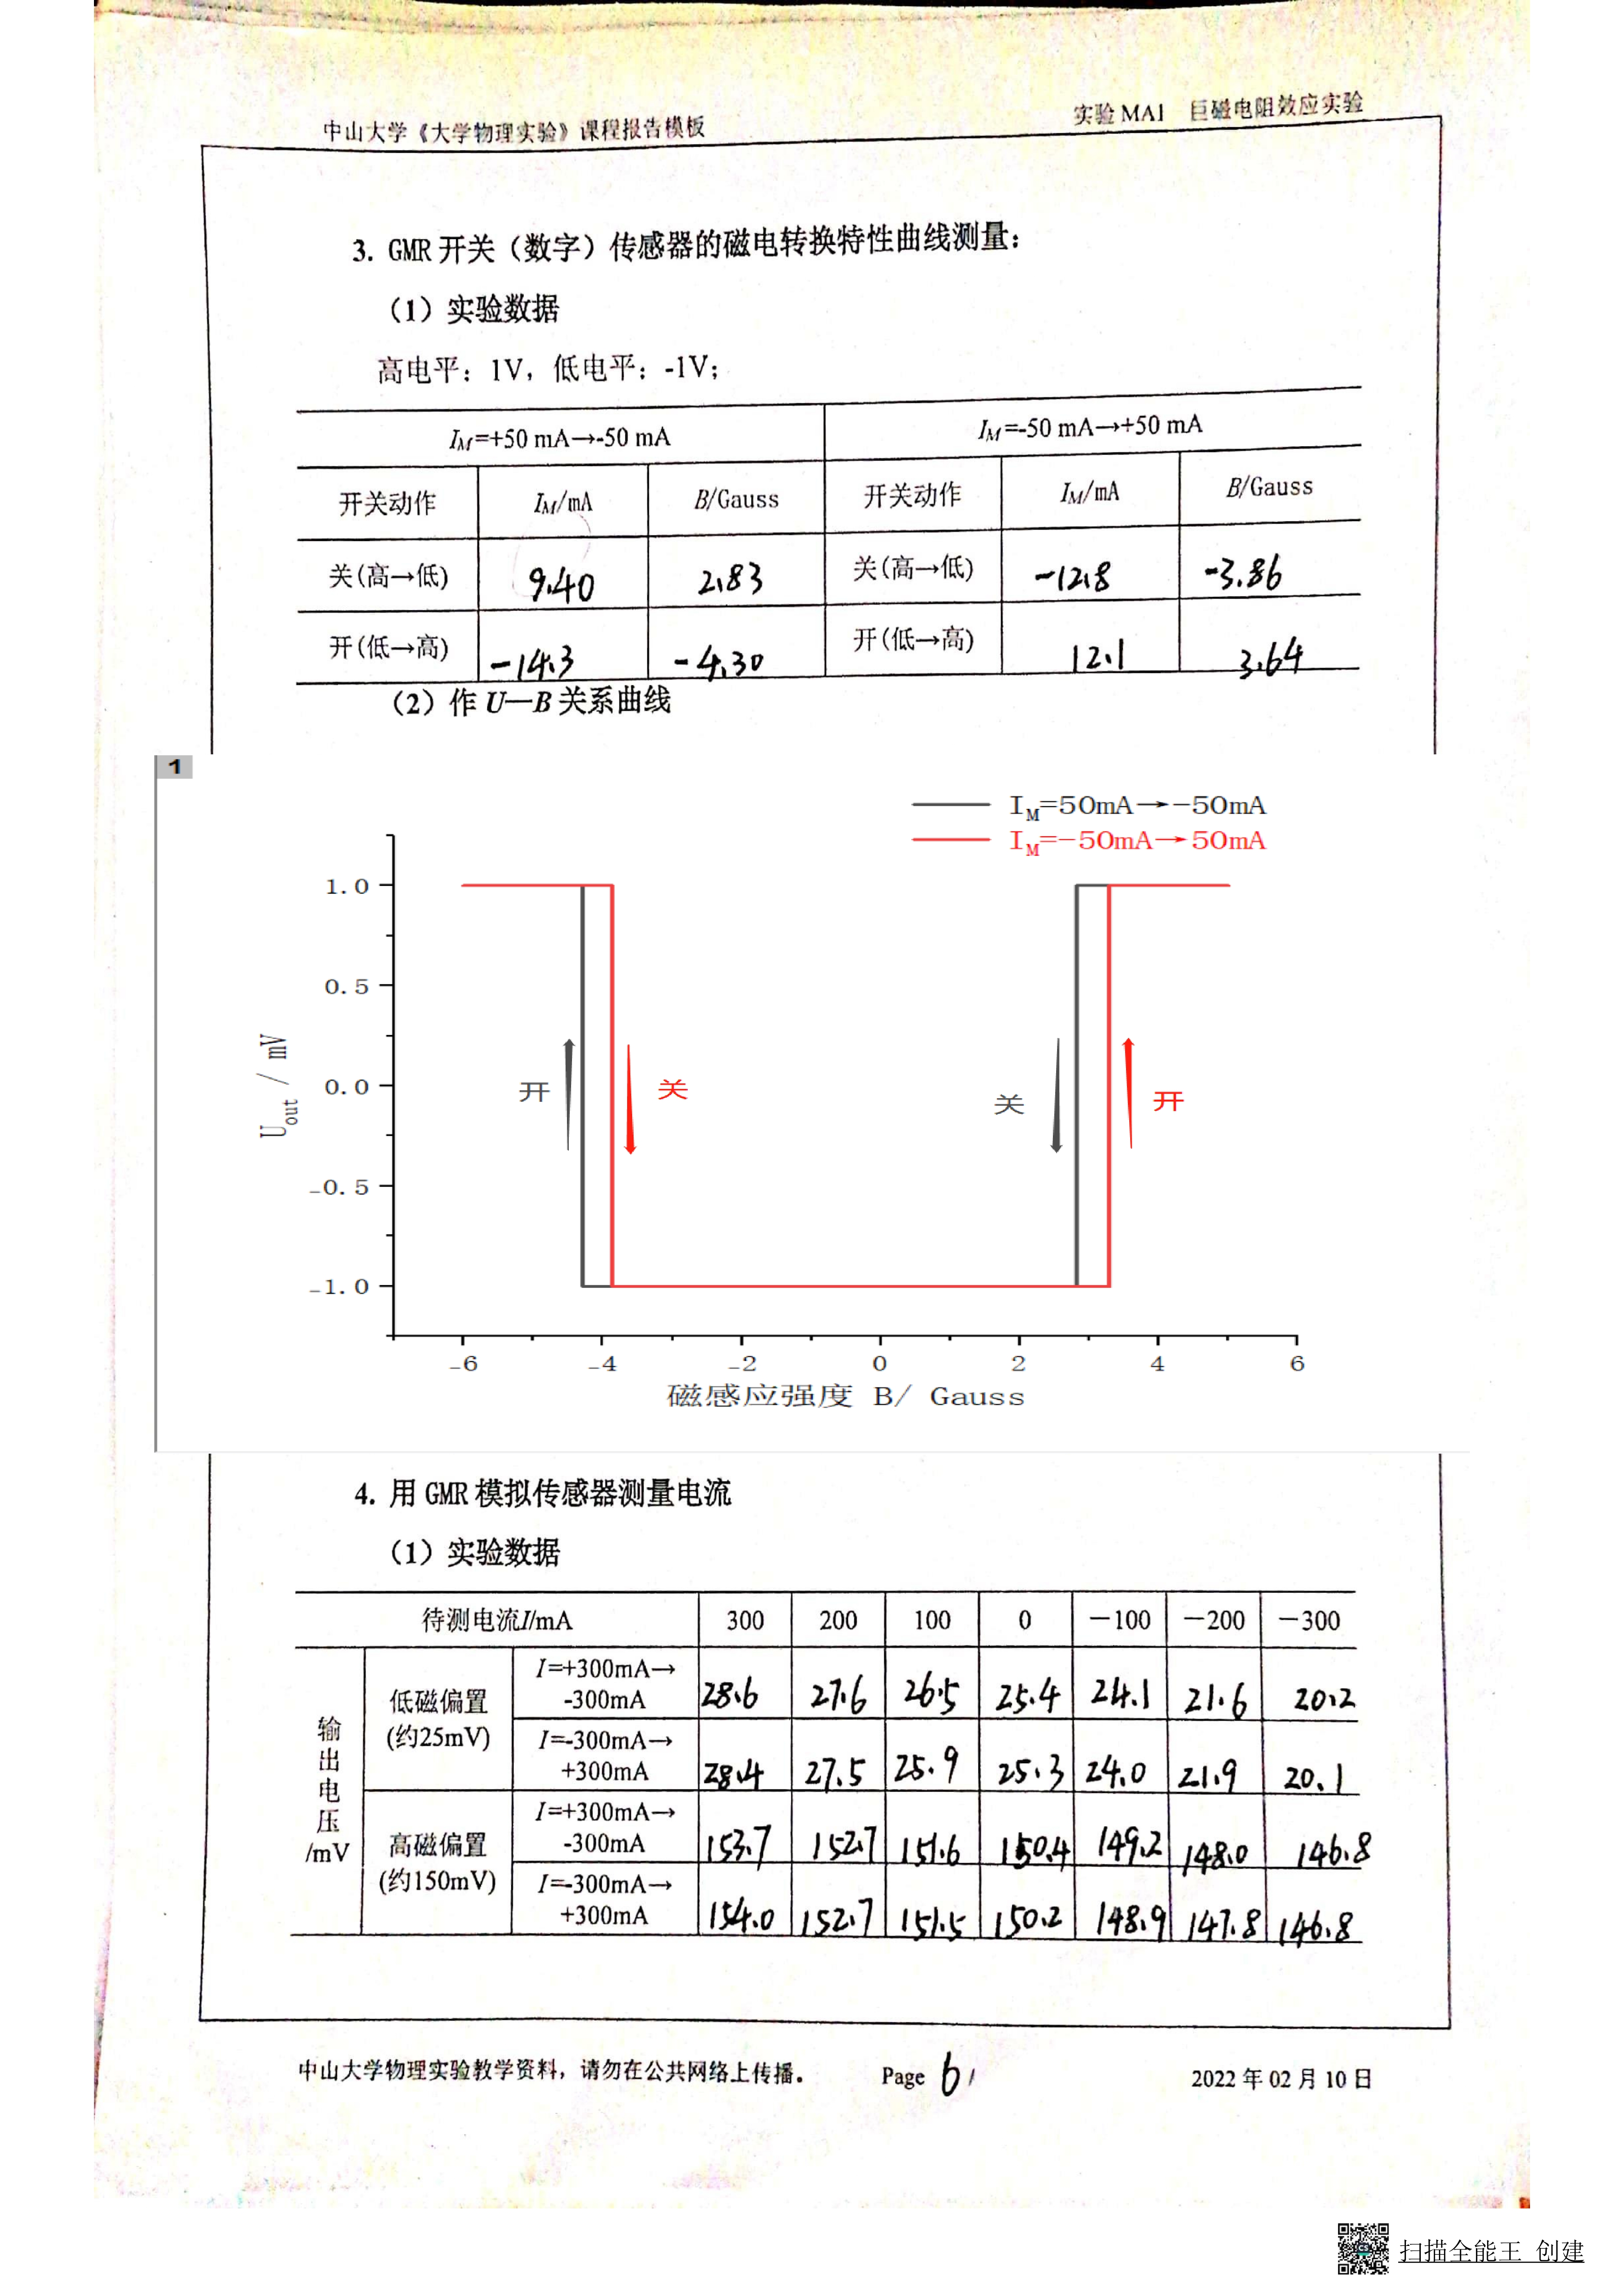 中山大学《大学物理实验》课程报告模板 实验 MA1 巨磁电阻效应实验
3. GMR 开关（数字）传感器的磁电转换特性曲线测量：
（1）实验数据
高电平：1V，低电平：-1V；
I_M=+50 mA→-50 mA I_M=-50 mA→+50 mA
开关动作 I_M/mA B/Gauss 开关动作 I_M/mA B/Gauss
关(高→低) 9.40 2.83 关(高→低) -12.8 -3.86
开(低→高) -14.3 -4.30 开(低→高) 12.1 3.64
（2）作 U—B 关系曲线
1
I_M=50mA→-50mA
I_M=-50mA→50mA
1.0
0.5
0.0
-0.5
-1.0
U_out / mV
开 关 关 开
-6 -4 -2 0 2 4 6
磁感应强度 B/ Gauss
4. 用 GMR 模拟传感器测量电流
（1）实验数据
待测电流I/mA 300 200 100 0 －100 －200 －300
输出电压/mV
低磁偏置(约25mV)
I=+300mA→-300mA 28.6 27.6 26.5 25.4 24.1 21.6 20.2
I=-300mA→+300mA 28.4 27.5 25.9 25.3 24.0 21.9 20.1
高磁偏置(约150mV)
I=+300mA→-300mA 153.7 152.7 151.6 150.4 149.2 148.0 146.8
I=-300mA→+300mA 154.0 152.7 151.5 150.2 148.9 147.8 146.8
中山大学物理实验教学资料，请勿在公共网络上传播。 Page 6 / 2022 年 02 月 10 日
扫描全能王 创建